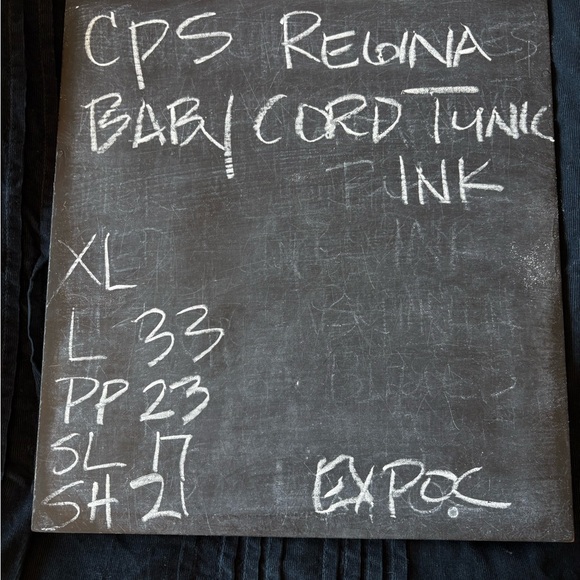 CPS REGINA
BABY CORD TUNIC
INK
XL
L 33
PP 23
SL 17
SH 21
EXPOC